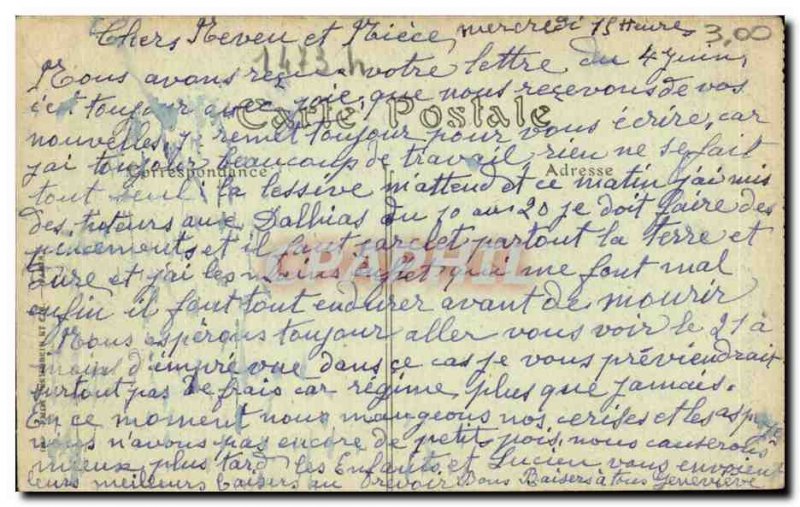 Chers Neveu et Nièce, mercredi 15 Heures 3,00
1473 h
Nous avons reçu votre lettre du 4 Juin,
c'est toujour avec joie, que nous reçevons de vos
Carte Postale
nouvelles, je remet toujour pour vous écrire, car
j'ai toujour beaucoup de travail, rien ne se fait
Correspondance Adresse
tout seul, la lessive m'attend et ce matin j'ai mis
des tuteurs aux Dalhias du 10 au 20 je doit faire des
et il faut sarcler partout la terre et
dure et j'ai les mains qui me font mal
CPAPHIL
enfin il faut tout endurer avant de mourir
Nous espérons toujour aller vous voir le 21 à
moins d'imprévue dans ce cas je vous préviendrait
surtout pas de frais car régime plus que jamais.
En ce moment nous mangeons nos cerises et les
nous n'avons pas encore de petit pois, nous causerons
mieux plus tard les Enfants et Lucien vous envoient
leurs meilleurs baisers au Revoir Bons Baisers à tous Geneviève